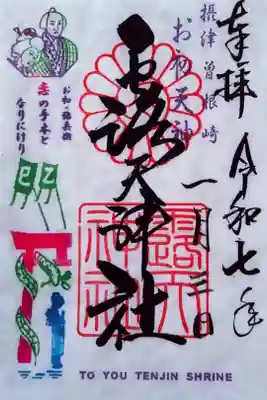 奉拝
令和七年
一月三日
摂津曽根崎
お初天神
露天神社
露天神社
お初・徳兵衛
恋の手本と
なりにけり
TO YOU TENJIN SHRINE